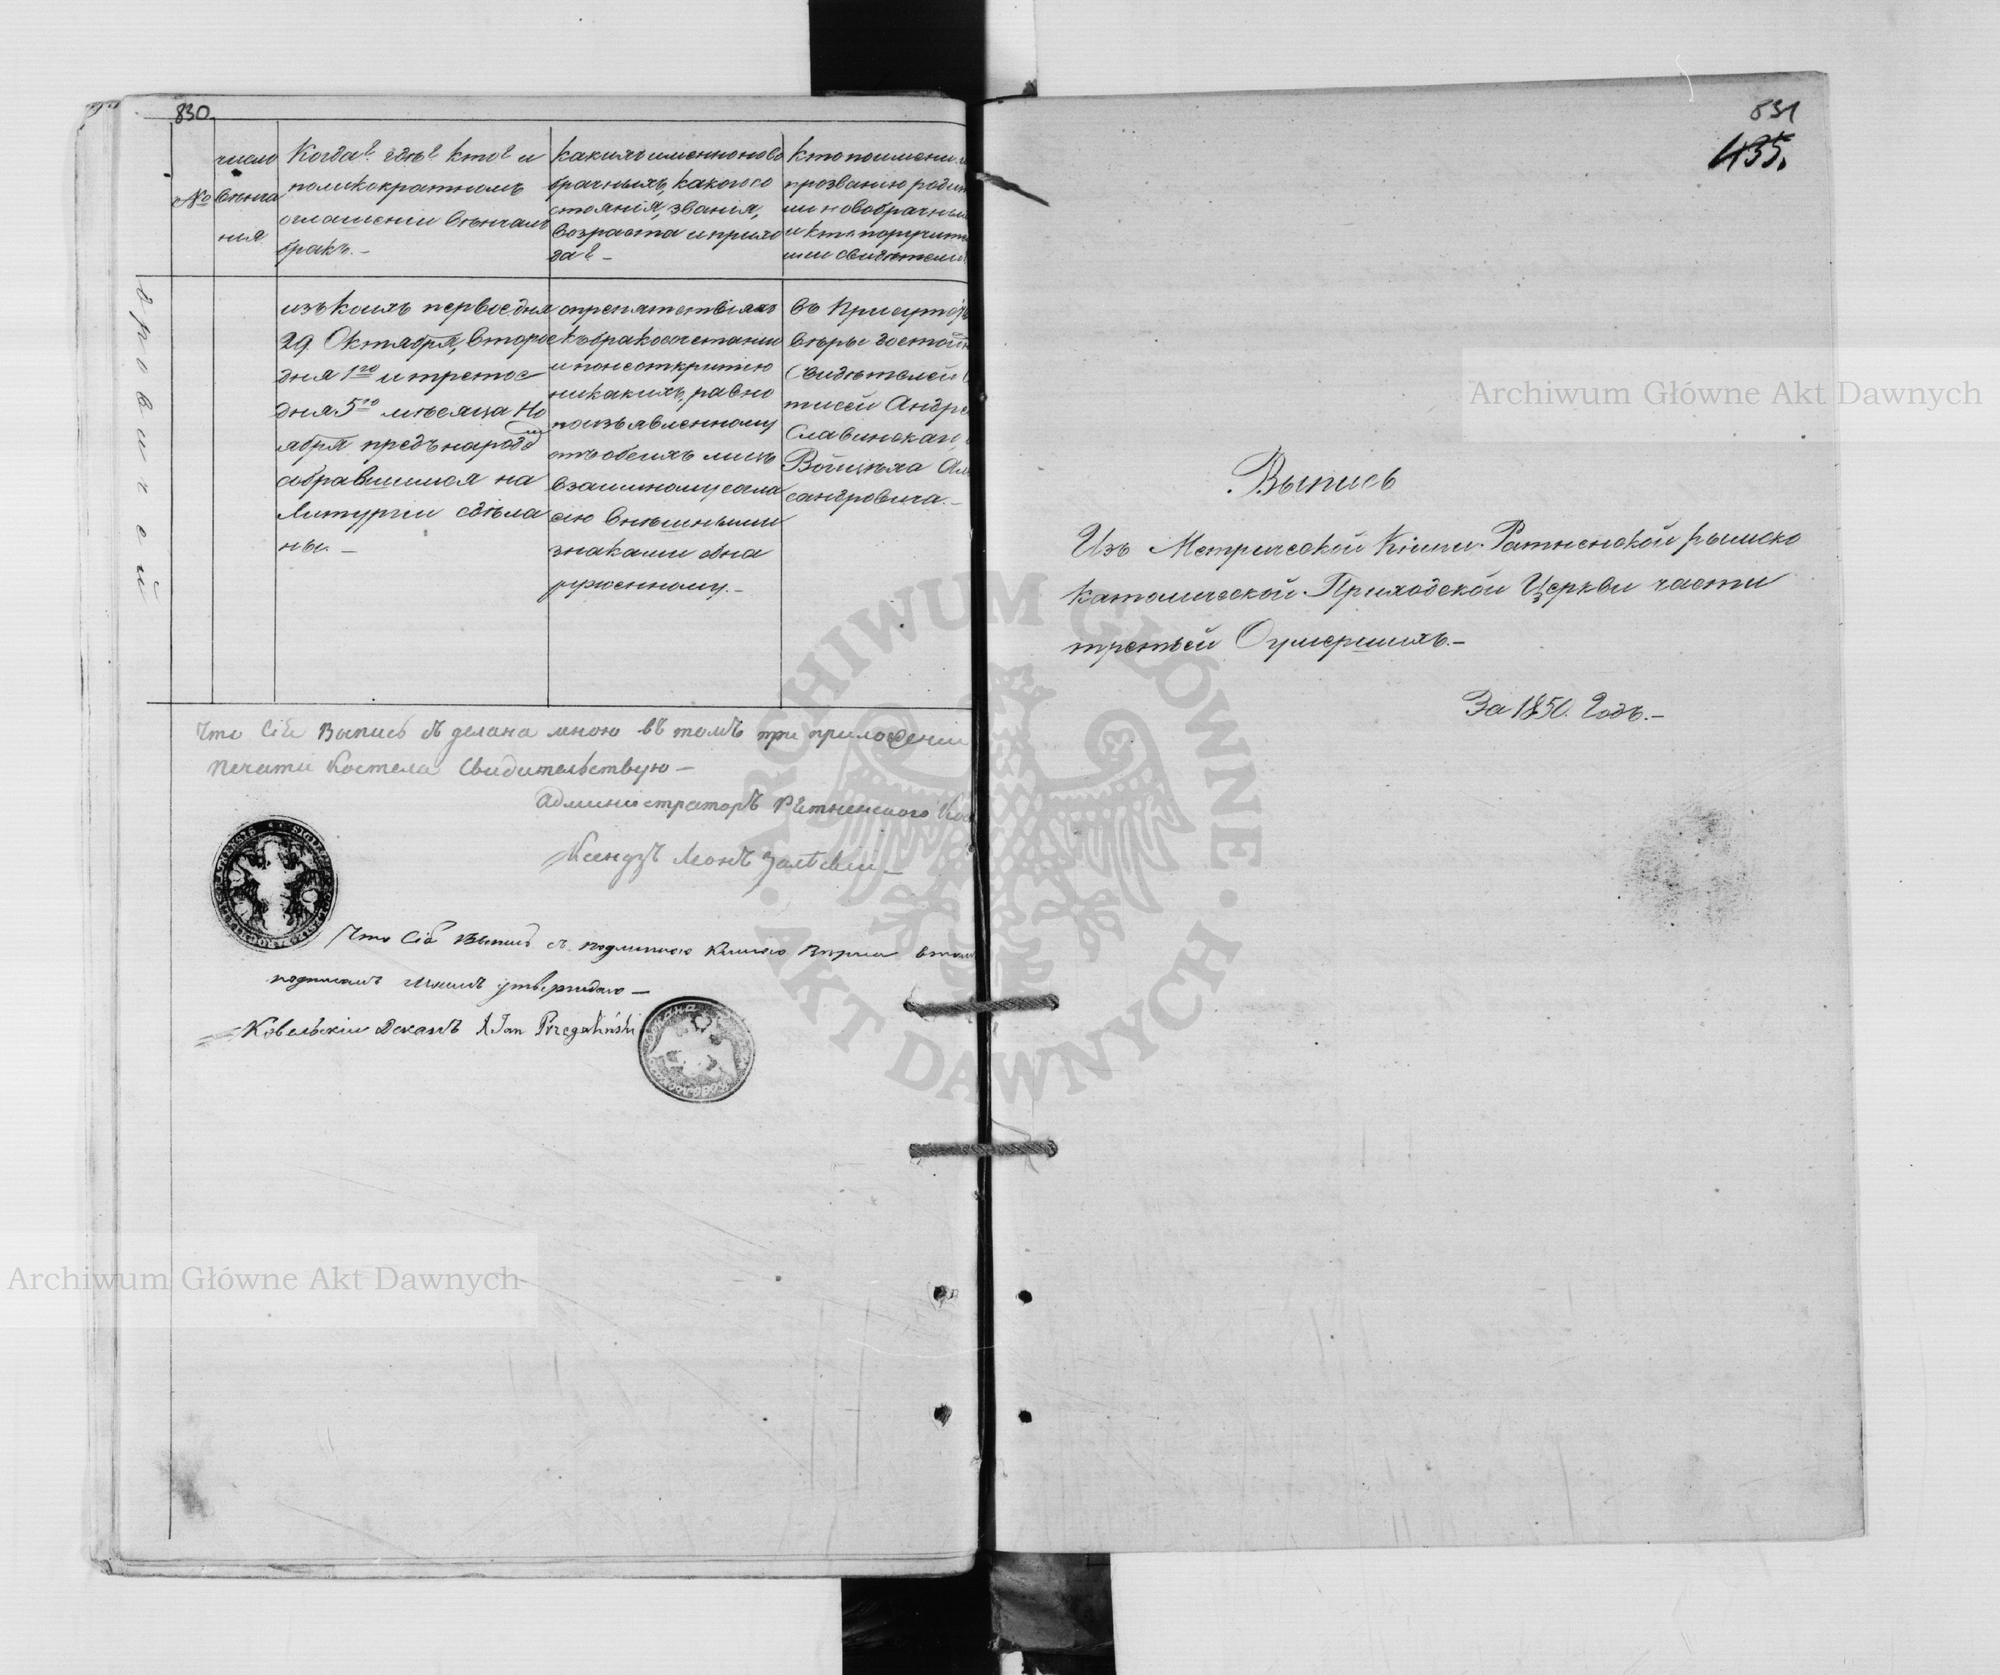 830
№
число
венча
ния.
Когда? где? кто? и
поликократномъ
оглашеніи венчалъ
бракъ.—
какихъ именно ново
брачныхъ, какого со
стоянія, званія,
возраста и прихо
да?—
кто по имени и
прозванію родит
ли новобрачных
и кто поручит
или свидетели
изъ коихъ первое дня
29 Октября, второе
дня 1го и третое
дня 5го месяца Но
ября предъ народ
собравшимся на
Литургіи сдела
ны.—
о препятствіяхъ
къ бракосочетанію
и по не откритію
никакихъ, равно
по изъявленному
отъ обеихъ лицъ
взаимному согла
сію внешними
знаками обна
руженному.—
въ Присутс
веры достой
Свидетелей
тисей Андре
Славинскаго,
Войцеха Але
сандровича.—
Что Сія Выпись зделана мною въ томъ при приложеніи
печати Костела Свидительствую—
Администраторъ Ратненского Кос
Ксендзъ Леонъ Залескій—
Что Сія Выпись съ подлинною книгою верна в том
подписомъ моимъ утверждаю—
Ковельскій Деканъ X Jan Przegaliński
831
435.
Выпись
Изъ Метрической Кніги Ратненской рымско
католической Приходской Церкви части
третьей О умершихъ.—
За 1850. Годъ.—
Archiwum Główne Akt Dawnych
Archiwum Główne Akt Dawnych
ARCHIWUM GŁÓWNE
AKT DAWNYCH